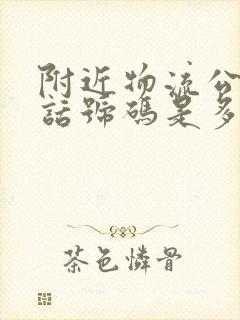 附近物流公
話號碼是多
茶色憐骨